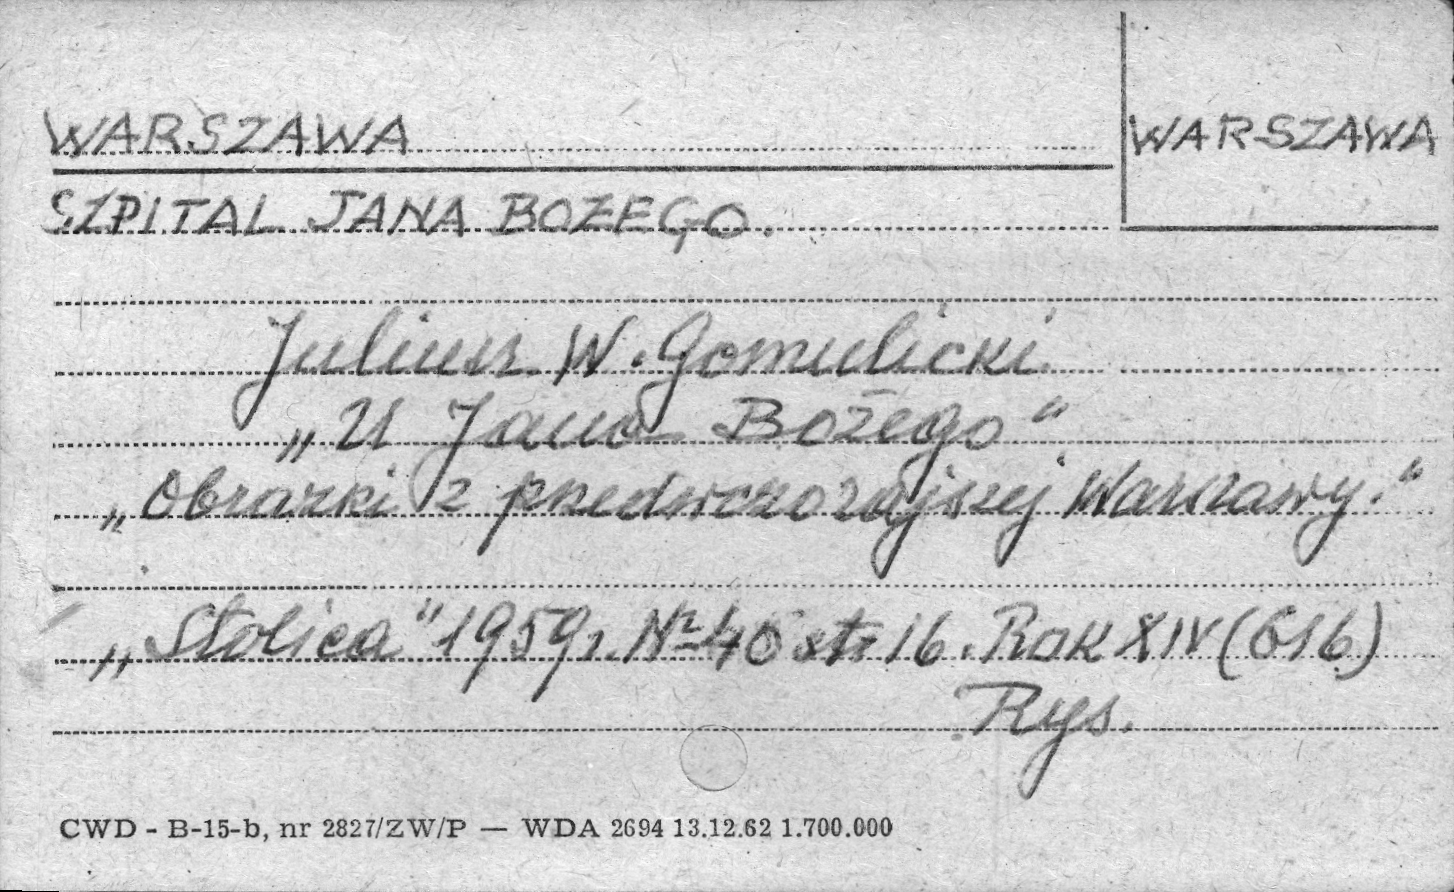 WARSZAWA
WARSZAWA
SZPITAL JANA BOŻEGO.
Juliusz W. Gomulicki
„U Jana Bożego"
„Obrazki z przedwczorajszej Warszawy."
„Stolica" 1959 r. Nr 40 str 16. Rok XIV (616)
Rys.
CWD - B-15-b, nr 2827/ZW/P — WDA 2694 13.12.62 1.700.000